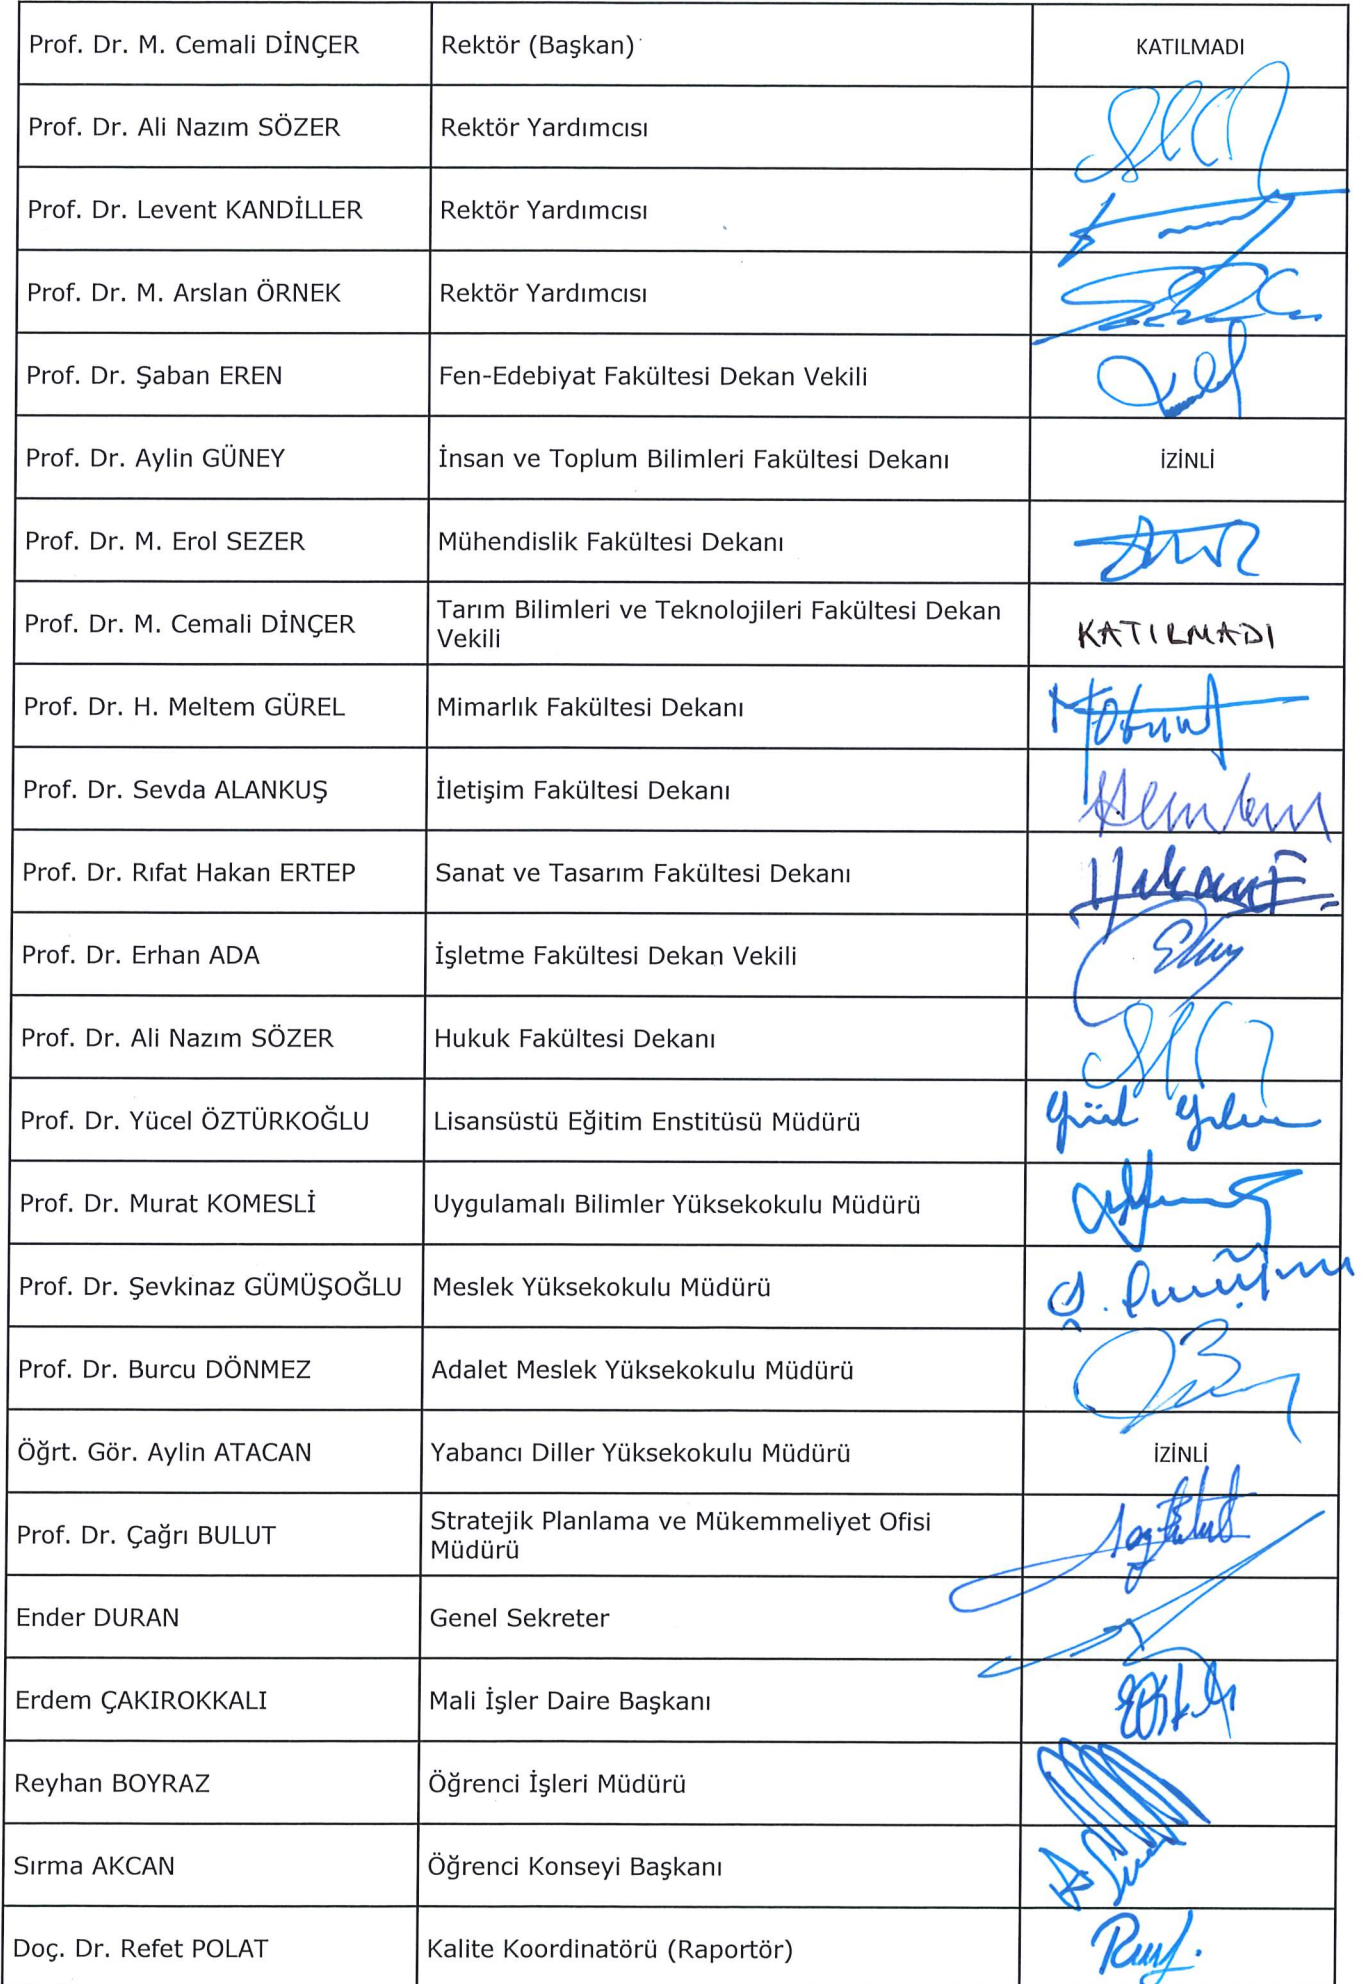 Prof. Dr. M. Cemali DİNÇER Rektör (Başkan) KATILMADI
Prof. Dr. Ali Nazım SÖZER Rektör Yardımcısı
Prof. Dr. Levent KANDİLLER Rektör Yardımcısı
Prof. Dr. M. Arslan ÖRNEK Rektör Yardımcısı
Prof. Dr. Şaban EREN Fen-Edebiyat Fakültesi Dekan Vekili
Prof. Dr. Aylin GÜNEY İnsan ve Toplum Bilimleri Fakültesi Dekanı İZİNLİ
Prof. Dr. M. Erol SEZER Mühendislik Fakültesi Dekanı
Prof. Dr. M. Cemali DİNÇER Tarım Bilimleri ve Teknolojileri Fakültesi Dekan
Vekili KATILMADI
Prof. Dr. H. Meltem GÜREL Mimarlık Fakültesi Dekanı
Prof. Dr. Sevda ALANKUŞ İletişim Fakültesi Dekanı
Prof. Dr. Rıfat Hakan ERTEP Sanat ve Tasarım Fakültesi Dekanı
Prof. Dr. Erhan ADA İşletme Fakültesi Dekan Vekili
Prof. Dr. Ali Nazım SÖZER Hukuk Fakültesi Dekanı
Prof. Dr. Yücel ÖZTÜRKOĞLU Lisansüstü Eğitim Enstitüsü Müdürü
Prof. Dr. Murat KOMESLİ Uygulamalı Bilimler Yüksekokulu Müdürü
Prof. Dr. Şevkinaz GÜMÜŞOĞLU Meslek Yüksekokulu Müdürü
Prof. Dr. Burcu DÖNMEZ Adalet Meslek Yüksekokulu Müdürü
Öğrt. Gör. Aylin ATACAN Yabancı Diller Yüksekokulu Müdürü İZİNLİ
Prof. Dr. Çağrı BULUT Stratejik Planlama ve Mükemmeliyet Ofisi
Müdürü
Ender DURAN Genel Sekreter
Erdem ÇAKIROKKALI Mali İşler Daire Başkanı
Reyhan BOYRAZ Öğrenci İşleri Müdürü
Sırma AKCAN Öğrenci Konseyi Başkanı
Doç. Dr. Refet POLAT Kalite Koordinatörü (Raportör)